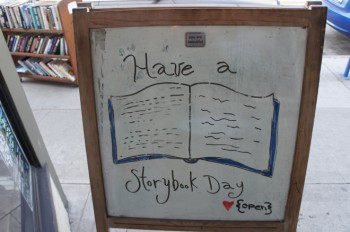 Have a
Storybook Day
{open}